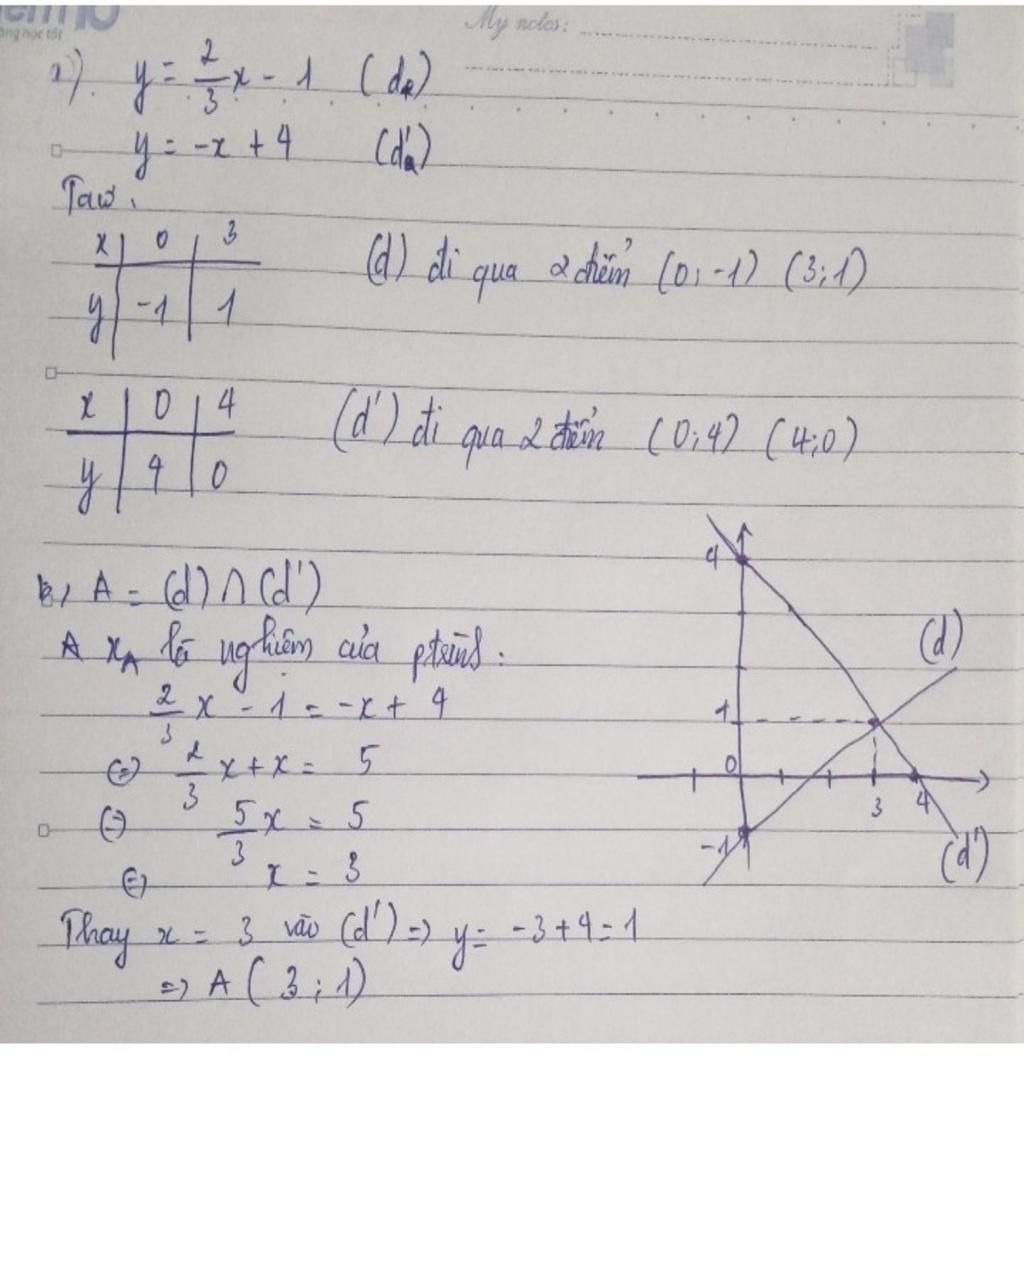 My notes:
a) y = 2/3 x - 1 (d)
y = -x + 4 (d')
x 0 3
y -1 1
(d) đi qua 2 điểm (0; -1) (3; 1)
x 0 4
y 4 0
(d') đi qua 2 điểm (0; 4) (4; 0)
b, A = (d) ∩ (d')
x_A là nghiệm của ptrình:
2/3 x - 1 = -x + 4
⇔ 2/3 x + x = 5
⇔ 5/3 x = 5
⇔ x = 3
Thay x = 3 vào (d') => y = -3 + 4 = 1
=> A (3; 1)
4
(d)
1
0
3 4
-1
(d')